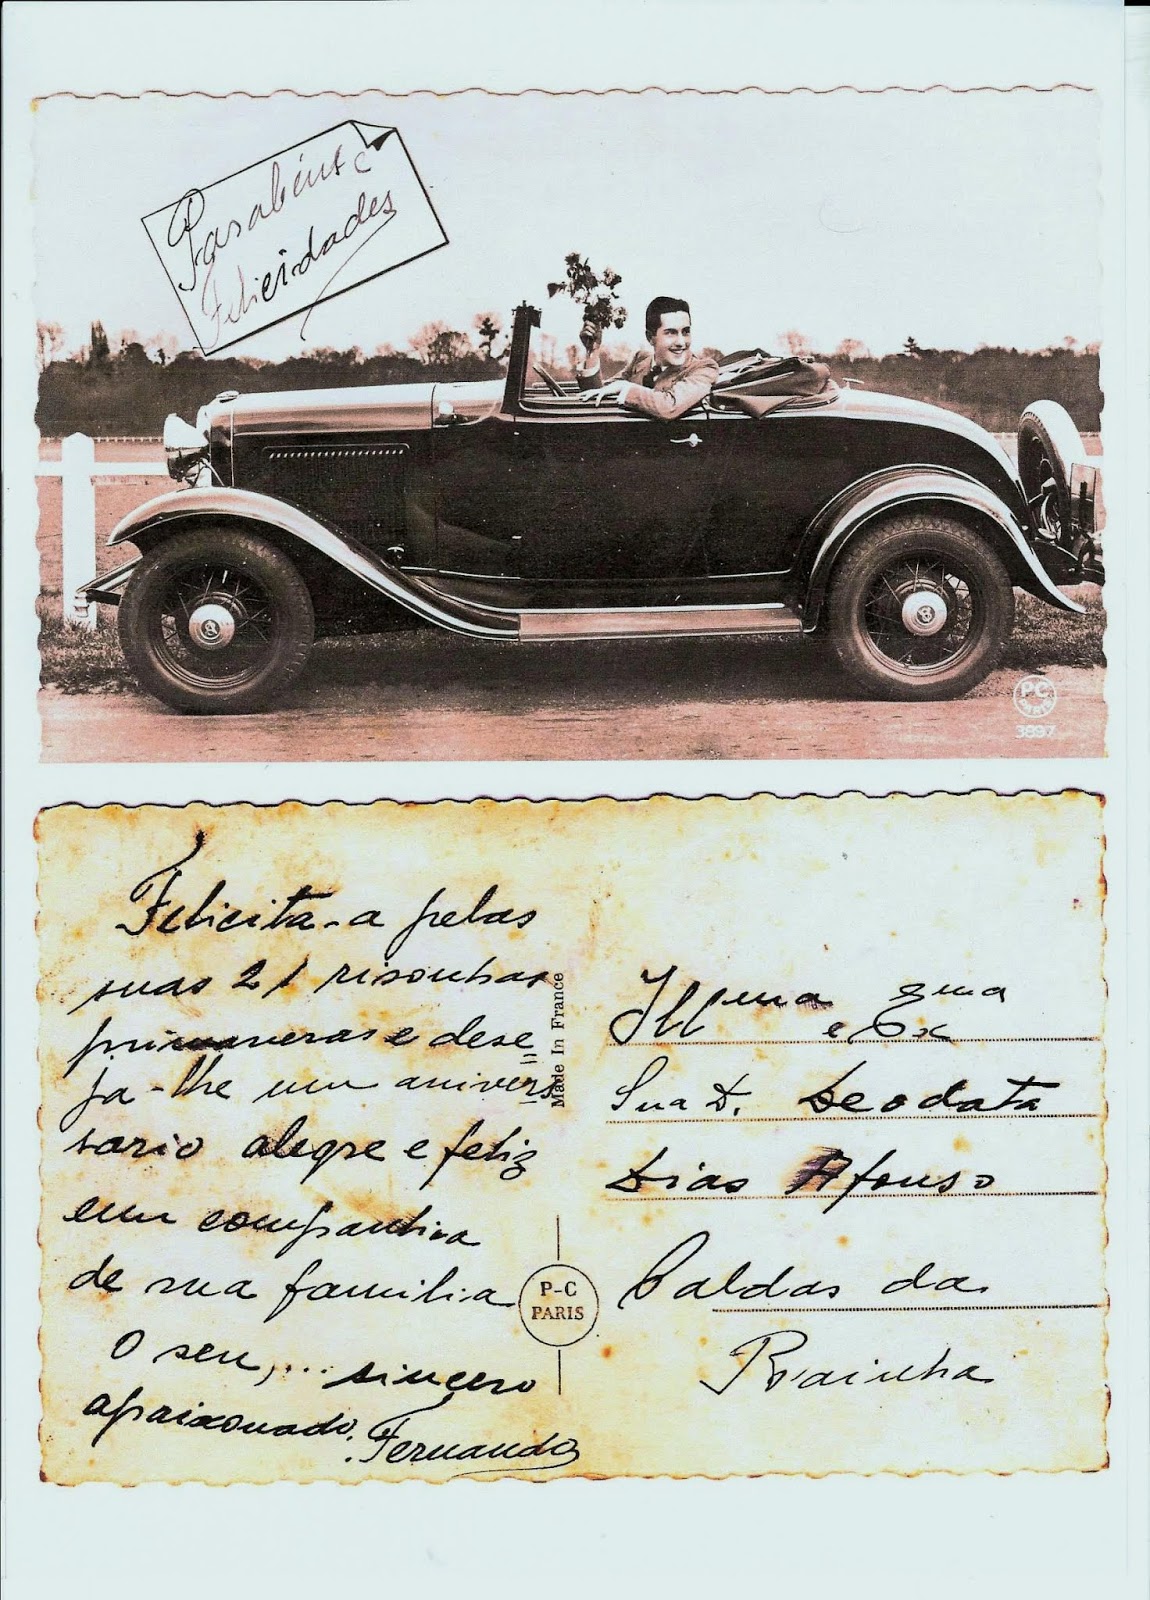 Parabéns e
Felicidades
PC
PARIS
3897
Felicita-a pelas
suas 21 risonhas
primaveras e dese=
ja-lhe um anivers
sario alegre e feliz
em companhia
de sua família
O seu,... sincero
apaixonado.
Fernando
Made In France
P-C
PARIS
Illma e Exma
Sua D. Deodata
Dias Afonso
Caldas da
Rainha